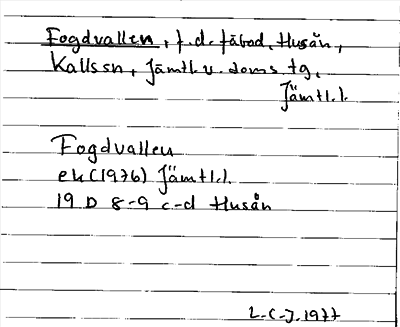 Fogdvallen, f.d. fäbod, Husån,
Kallssn, Jämtl. v. doms. tg,
Jämtl.l.
Fogdvallen
ek (1976) Jämtl.l.
19 D 8-9 c-d Husån
L-C-J. 1977